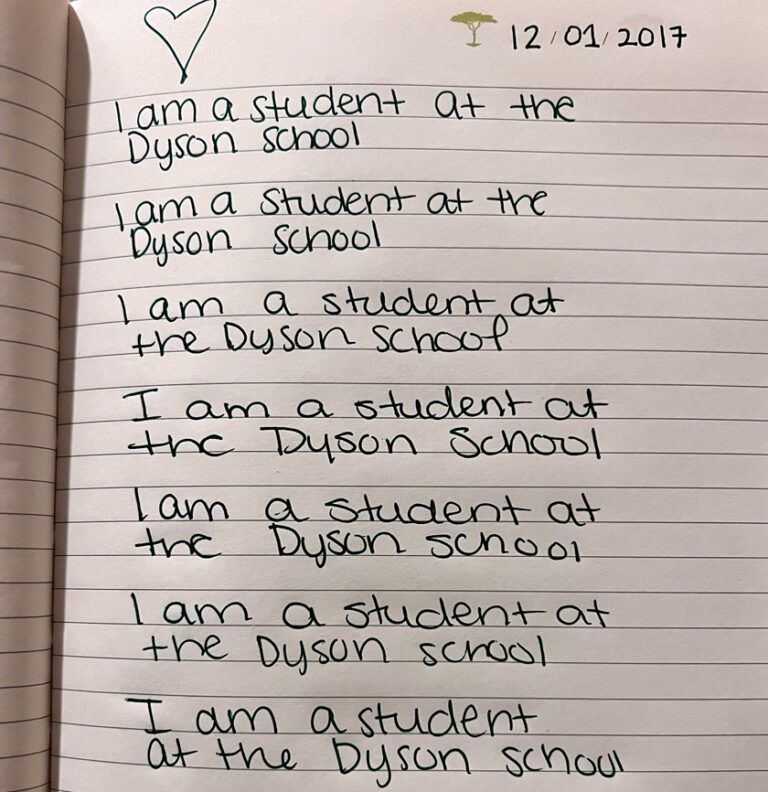 12/01/2017
I am a student at the
Dyson school
I am a student at the
Dyson school
I am a student at
the Dyson school
I am a student at
the Dyson School
I am a student at
the Dyson school
I am a student at
the Dyson school
I am a student
at the Dyson school